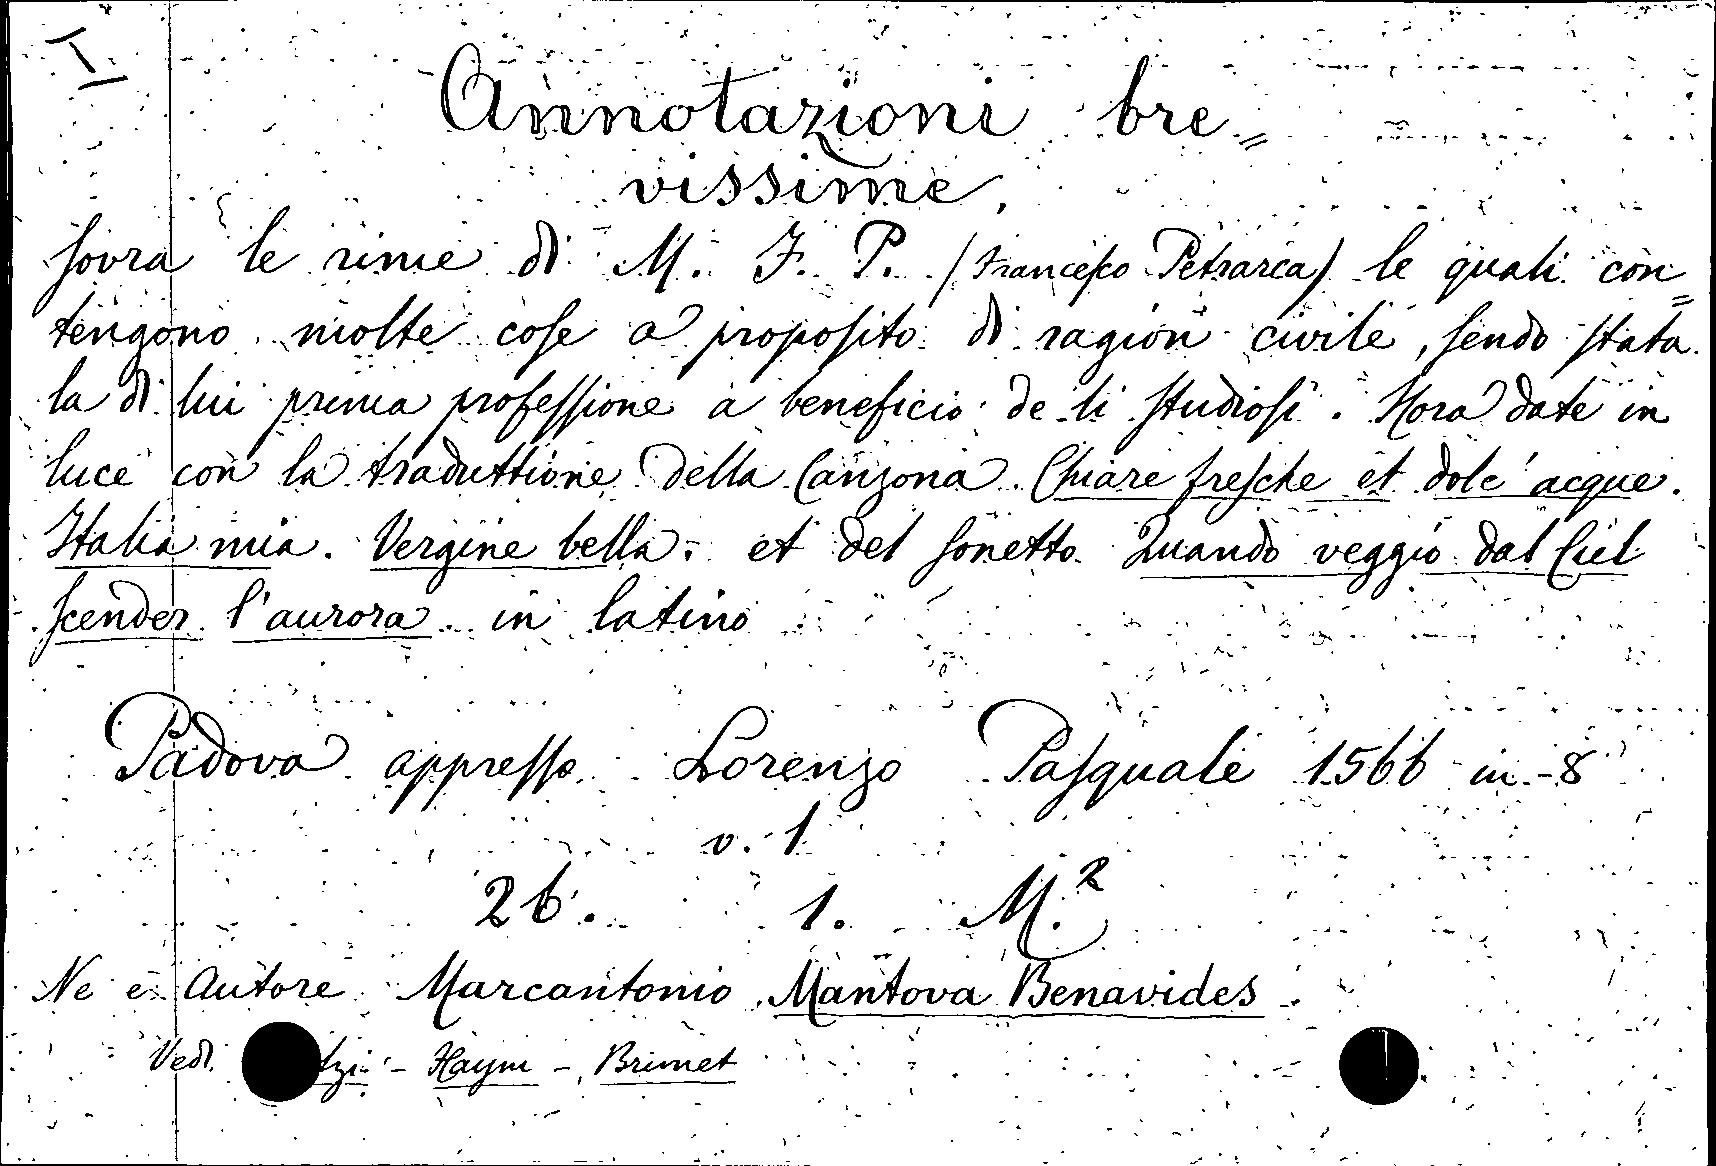 I
Annotazioni bre=
vissime,
sovra le rime di M. F. P. (Francesco Petrarca) le quali con=
tengono molte cose a proposito di ragion civile, sendo stata
la di lui prima professione a beneficio de li studiosi. Hora date in
luce con la traduttione della Canzona Chiare fresche et dolc'acque.
Italia mia. Vergine bella. et del sonetto Quando veggio dal Ciel
scender l'aurora in latino
Padova appresso Lorenzo Pasquale 1566 in-8
v. 1
26. 1. M.²
Ne è autore Marcantonio Mantova Benavides.
Vedi - Haym - Brunet